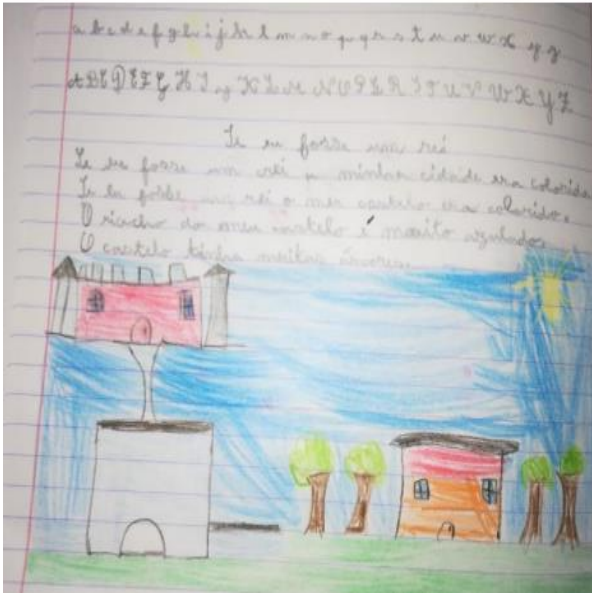 a b c d e f g h i j k l m n o p q r s t u v w x y z
A B C D E F G H I J K L M N O P Q R S T U V W X Y Z
Se eu fosse um rei
Se eu fosse um rei a minha cidade era colorida
Se eu fosse um rei o meu castelo era colorido.
O riacho do meu castelo é muito azulado.
O castelo tinha muitas árvores.